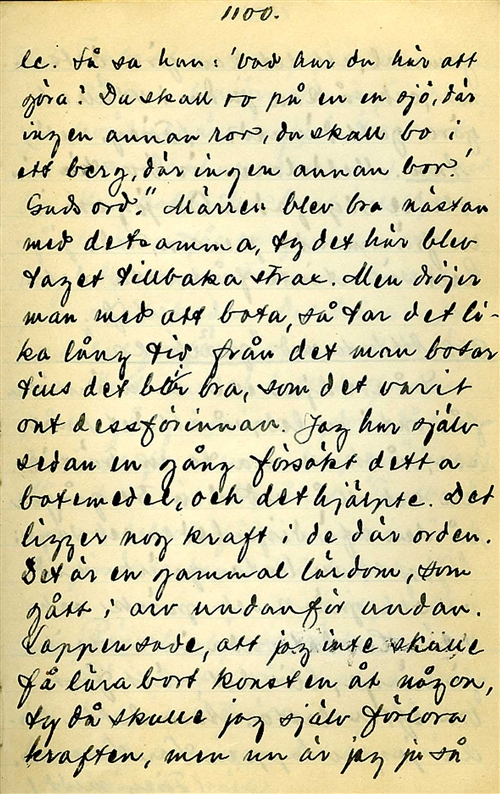 1100.
le. Så sa han: 'vad har du här att
göra? Du skall ro på en en sjö, där
ingen annan ror, du skall bo i
ett berg, där ingen annan bor.'
Guds ord." Märren blev bra nästan
med detsamma, ty det här blev
taget tillbaka strax. Men dröjer
man med att bota, så tar det li-
ka lång tid från det man botar
tills det blir bra, som det varit
ont dessförinnan. Jag har själv
sedan en gång försökt detta
botemedel, och det hjälpte. Det
ligger nog kraft i de där orden.
Det är en gammal lärdom, som
gått i arv undanför undan.
Lappen sade, att jag inte skulle
få lära bort konsten åt någon,
ty då skulle jag själv förlora
kraften, men nu är jag ju så